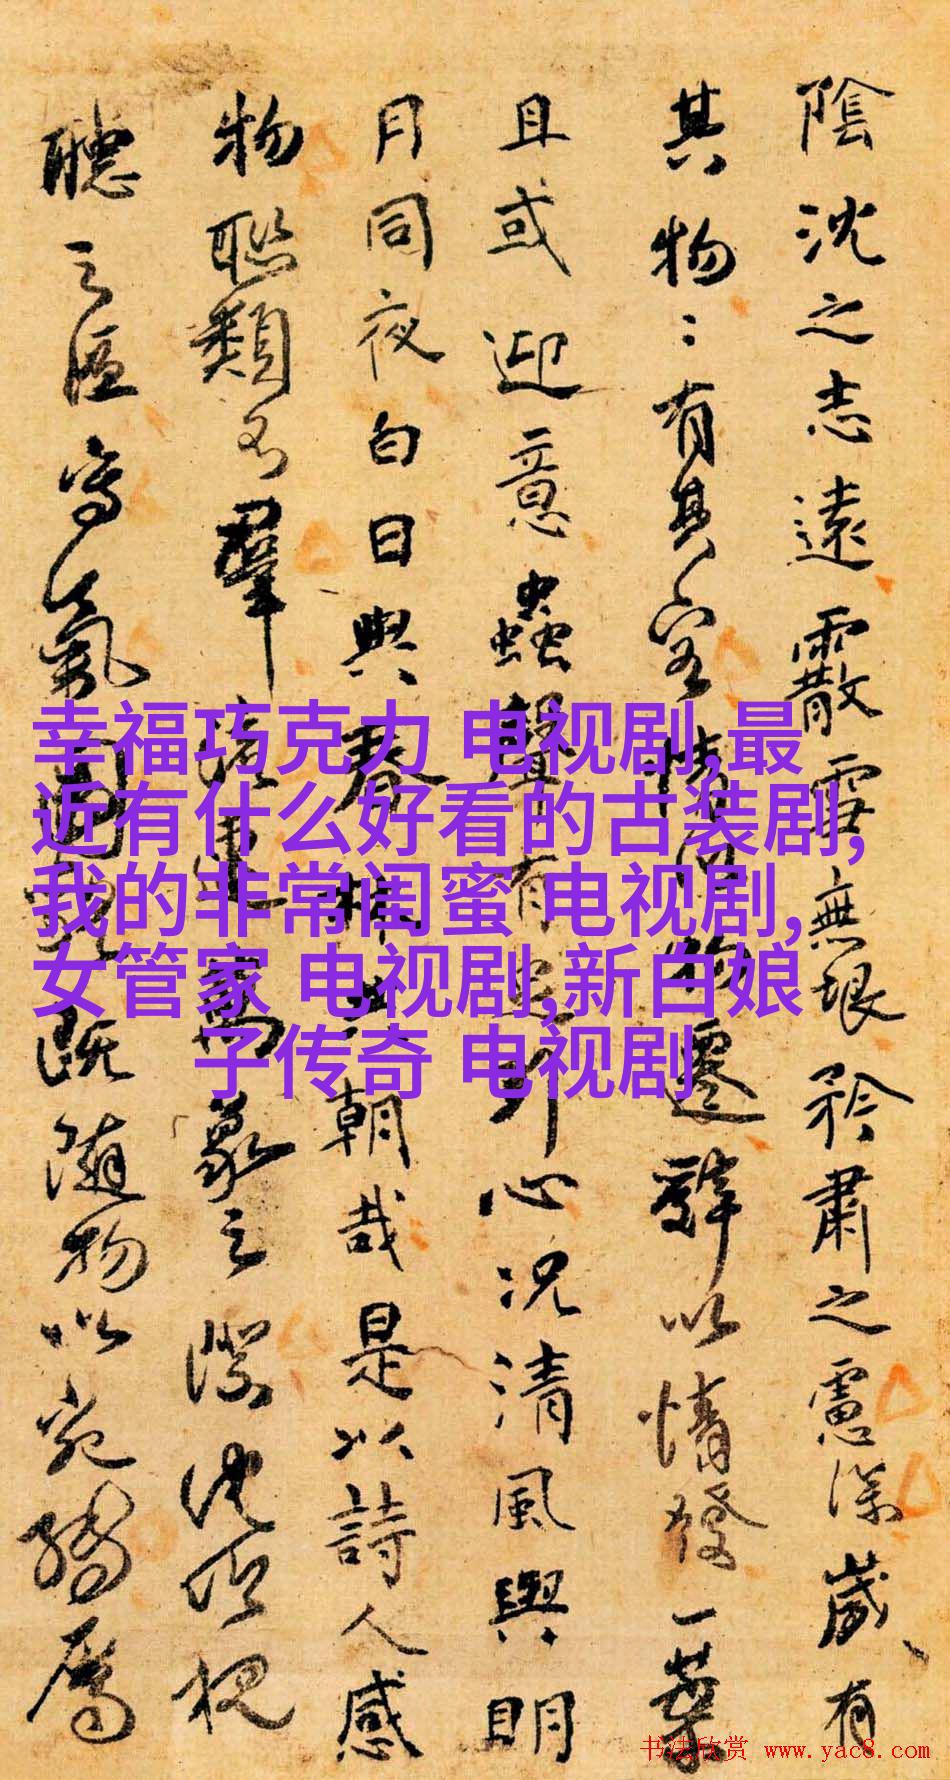 陰沈之志遠霰雪無垠矜肅之慮深歲有
其物〻有其容情因物遷辭以情發一葉
且或迎意蟲聲有足引心況清風與明
月同夜白日與春林共朝哉是以詩人感
物聯類不羣流連萬象之際沈吟視
聽之區寫氣圖貌既隨物以宛轉屬
幸福巧克力 电视剧,最
近有什么好看的古装剧,
我的非常闺蜜 电视剧,
女管家 电视剧,新白娘
子传奇 电视剧
书法欣赏 www.yac8.com